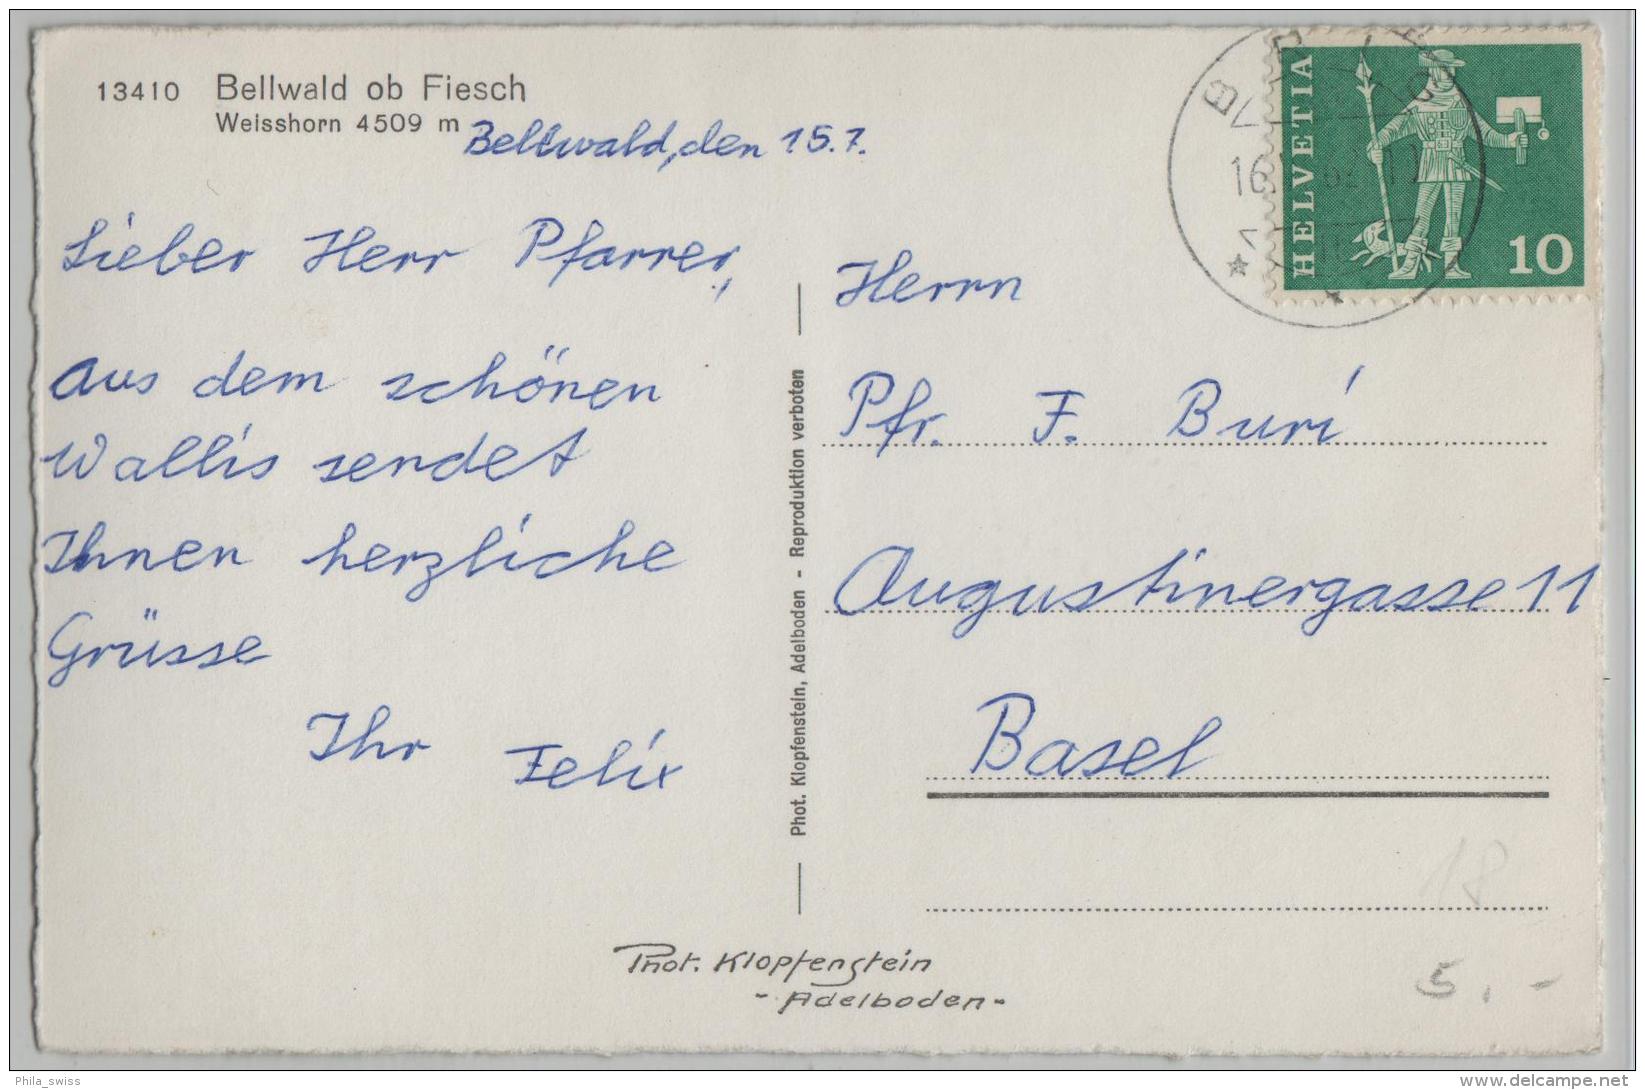 13410 Bellwald ob Fiesch
Weisshorn 4509 m
Bellwald, den 15.7.
Lieber Herr Pfarrer,
aus dem schönen
Wallis sendet
Ihnen herzliche
Grüsse
Ihr Felix
Phot. Klopfenstein, Adelboden - Reproduktion verboten
HELVETIA
10
BRIG
16
62
Herrn
Pfr. F. Buri
Augustinergasse 11
Basel
18
5.-
Phot. Klopfenstein
- Adelboden -
Phila_swiss
delcampe.net